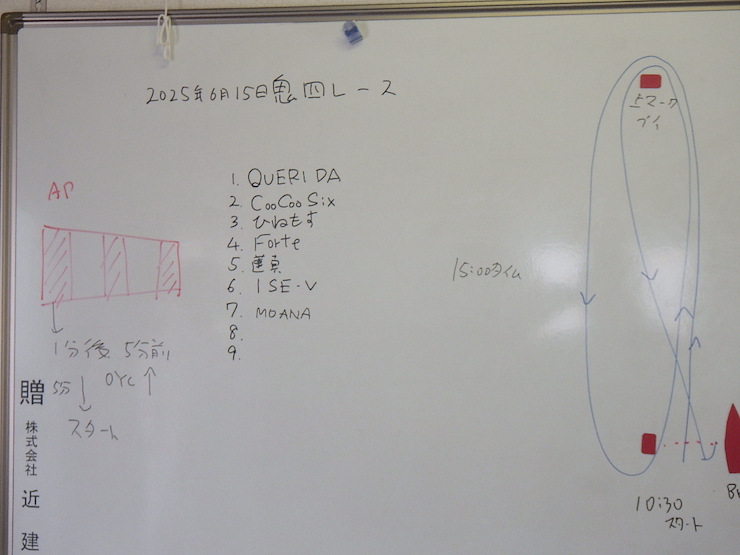 2025年6月15日 鬼四レース
上マーク
ブイ
AP
1. QUERIDA
2. CooCoo Six
3. ひねもす
4. Forte
5.
6. ISE-V
7. MOANA
8.
9.
15:00タイム
1分後 5分前
5分 OYC
スタート
10:30
スタート
贈
株式会社
近
建